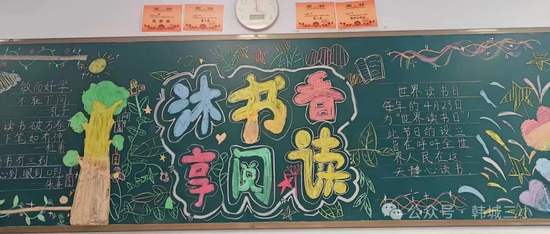 敏而好学
不耻下问
读书破万卷
下笔如有
书有三到
沐书香
享阅读
世界读书日
每年的4月23日
为“世界读书日”,
此节日的设立
旨在呼吁全世
界人民在这
天
读书
公众号·韩城三小